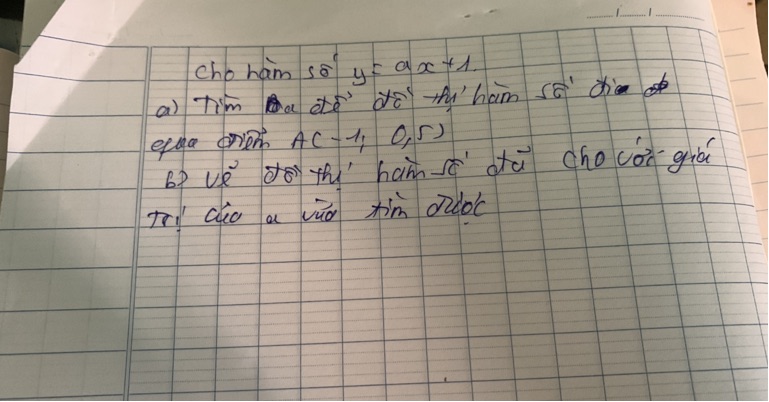 cho hàm số y = ax + 1.
a) Tìm a để đồ thị hàm số đi
qua điểm A(-1; 0,5)
b) vẽ đồ thị hàm số đã cho với giá
trị của a vừa tìm được